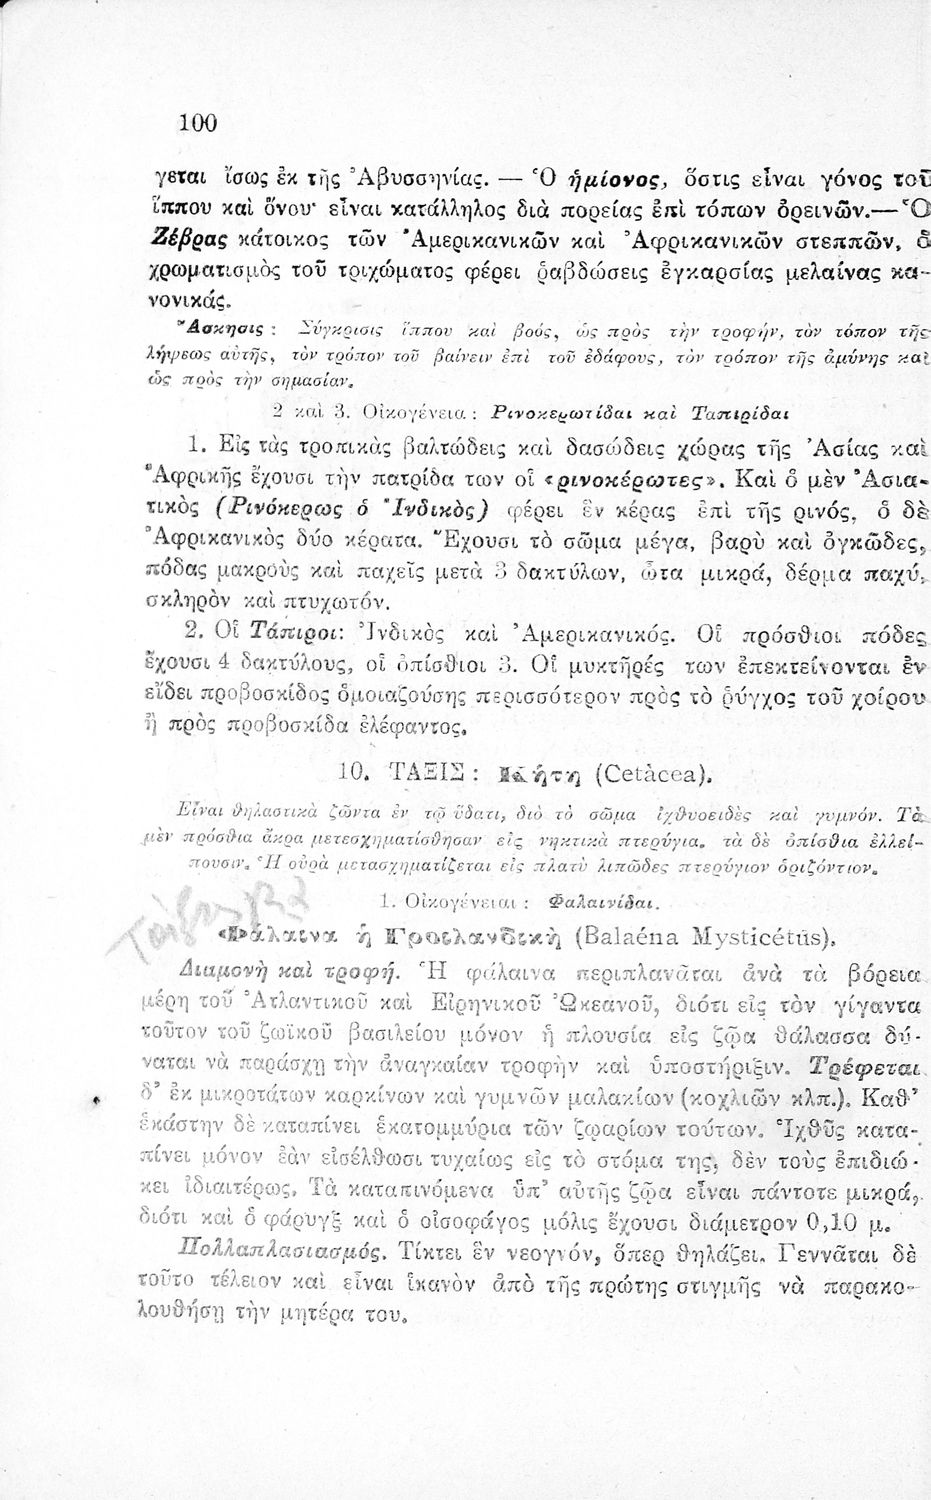 100
γεται ἴσως ἐκ τῆς Ἀβυσσηνίας. — Ὁ ἡμίονος, ὅστις εἶναι γόνος τοῦ
ἵππου καὶ ὄνου· εἶναι κατάλληλος διὰ πορείας ἐπὶ τόπων ὀρεινῶν.—Ὁ
Ζέβρας κάτοικος τῶν Ἀμερικανικῶν καὶ Ἀφρικανικῶν στεππῶν, ὁ
χρωματισμὸς τοῦ τριχώματος φέρει ῥαβδώσεις ἐγκαρσίας μελαίνας κα-
νονικάς.
Ἄσκησις : Σύγκρισις ἵππου καὶ βοός, ὡς πρὸς τὴν τροφήν, τὸν τόπον τῆς
λήψεως αὐτῆς, τὸν τρόπον τοῦ βαίνειν ἐπὶ τοῦ ἐδάφους, τὸν τρόπον τῆς ἀμύνης καὶ
ὡς πρὸς τὴν σημασίαν.
2 καὶ 3. Οἰκογένεια : Ρινοκερωτίδαι καὶ Ταπιρίδαι
1. Εἰς τὰς τροπικὰς βαλτώδεις καὶ δασώδεις χώρας τῆς Ἀσίας καὶ
Ἀφρικῆς ἔχουσι τὴν πατρίδα των οἱ «ρινοκέρωτες». Καὶ ὁ μὲν Ἀσια-
τικὸς (Ρινόκερως ὁ Ἰνδικὸς) φέρει ἓν κέρας ἐπὶ τῆς ρινός, ὁ δὲ
Ἀφρικανικὸς δύο κέρατα. Ἔχουσι τὸ σῶμα μέγα, βαρὺ καὶ ὀγκῶδες,
πόδας μακροὺς καὶ παχεῖς μετὰ 3 δακτύλων, ὦτα μικρά, δέρμα παχύ,
σκληρὸν καὶ πτυχωτόν.
2. Οἱ Τάπιροι: Ἰνδικὸς καὶ Ἀμερικανικός. Οἱ πρόσθιοι πόδες
ἔχουσι 4 δακτύλους, οἱ ὀπίσθιοι 3. Οἱ μυκτῆρές των ἐπεκτείνονται ἐν
εἴδει προβοσκίδος ὁμοιαζούσης περισσότερον πρὸς τὸ ῥύγχος τοῦ χοίρου
ἢ πρὸς προβοσκίδα ἐλέφαντος.
10. ΤΑΞΙΣ : Κήτη (Cetàcea).
Εἶναι θηλαστικὰ ζῶντα ἐν τῷ ὕδατι, διὸ τὸ σῶμα ἰχθυοειδὲς καὶ γυμνόν. Τὰ
μὲν πρόσθια ἄκρα μετεσχηματίσθησαν εἰς νηκτικὰ πτερύγια, τὰ δὲ ὀπίσθια ἐλλεί-
πουσιν. Ἡ οὐρὰ μετασχηματίζεται εἰς πλατὺ λιπῶδες πτερύγιον ὁριζόντιον.
1. Οἰκογένειαι : Φαλαινίδαι.
«Φάλαινα ἡ Γροιλανδικὴ (Balaéna Mysticétus).
Διαμονὴ καὶ τροφή. Ἡ φάλαινα περιπλανᾶται ἀνὰ τὰ βόρεια
μέρη τοῦ Ἀτλαντικοῦ καὶ Εἰρηνικοῦ Ὠκεανοῦ, διότι εἰς τὸν γίγαντα
τοῦτον τοῦ ζωϊκοῦ βασιλείου μόνον ἡ πλουσία εἰς ζῷα θάλασσα δύ-
ναται νὰ παράσχῃ τὴν ἀναγκαίαν τροφὴν καὶ ὑποστήριξιν. Τρέφεται
δ' ἐκ μικροτάτων καρκίνων καὶ γυμνῶν μαλακίων (κοχλιῶν κλπ.). Καθ'
ἑκάστην δὲ καταπίνει ἑκατομμύρια τῶν ζῳαρίων τούτων. Ἰχθῦς κατα-
πίνει μόνον ἐὰν εἰσέλθωσι τυχαίως εἰς τὸ στόμα της, δὲν τοὺς ἐπιδιώ-
κει ἰδιαιτέρως. Τὰ καταπινόμενα ὑπ' αὐτῆς ζῷα εἶναι πάντοτε μικρά,
διότι καὶ ὁ φάρυγξ καὶ ὁ οἰσοφάγος μόλις ἔχουσι διάμετρον 0,10 μ.
Πολλαπλασιασμός. Τίκτει ἓν νεογνόν, ὅπερ θηλάζει. Γεννᾶται δὲ
τοῦτο τέλειον καὶ εἶναι ἱκανὸν ἀπὸ τῆς πρώτης στιγμῆς νὰ παρακο-
λουθήσῃ τὴν μητέρα του.